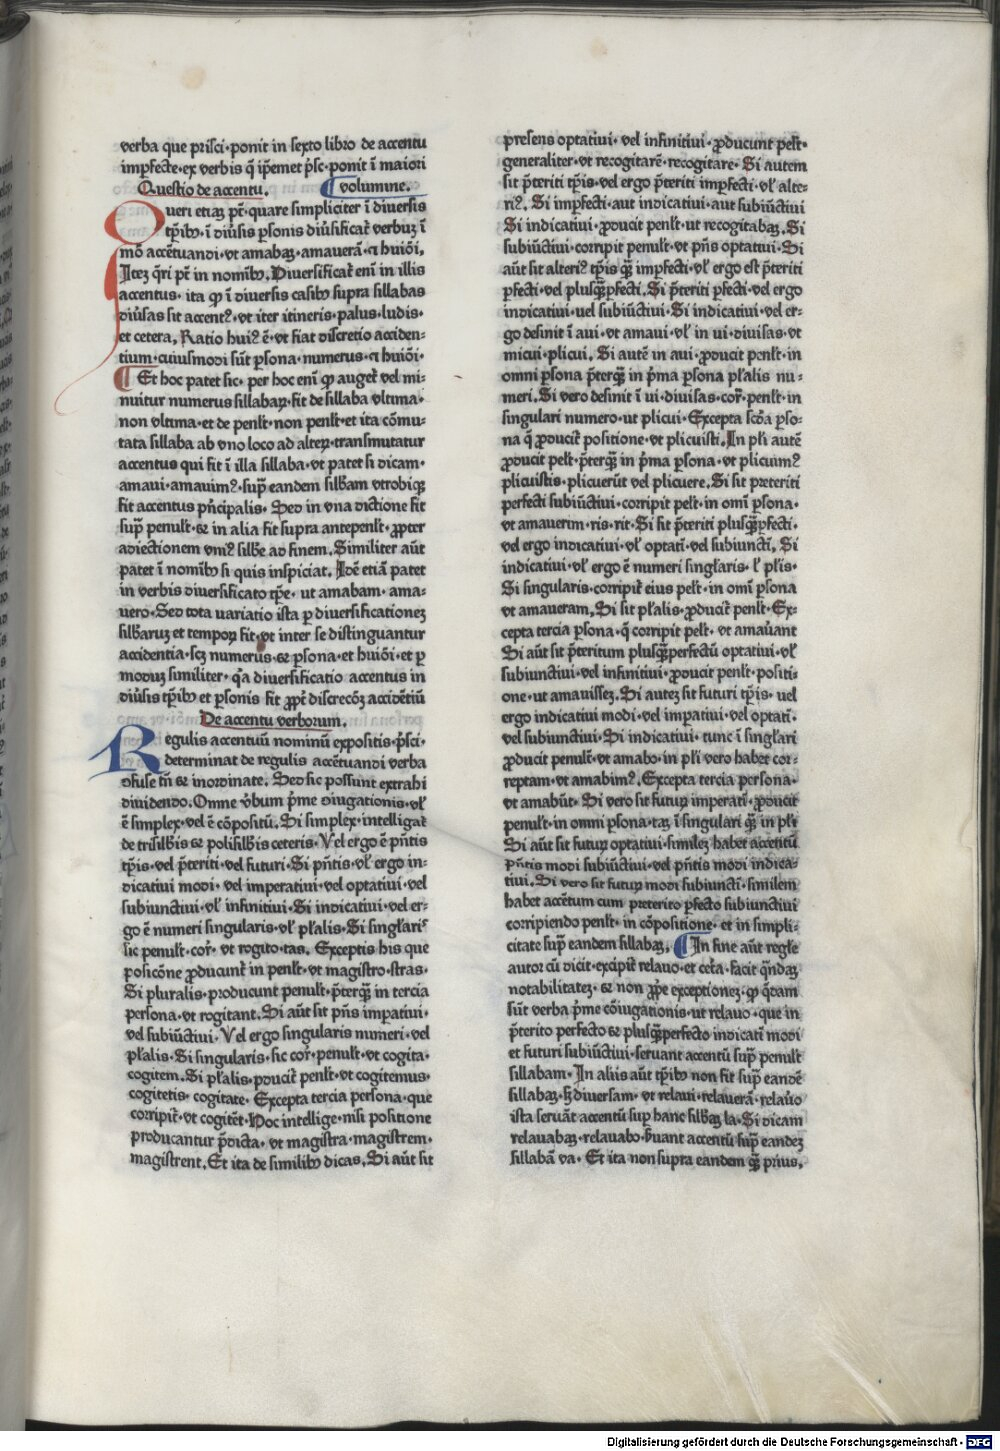 verba que prisci· ponit in sexto libro de accentu
impfecte· ex verbis q̃ ip̃emet p̃sc· ponit ĩ maiori
Questio de accentu. ¶ volumine.
Queri etiaꝫ pt̃· quare simpliciter ĩ diuersis
tp̃ibꝰ· ĩ diũsis ꝑsonis diũsificat̃ verbuꝫ ĩ
mõ accẽtuandi· vt amabaꝫ· amauerã· ⁊ huiõi.
Iteꝫ q̃ri pt̃ in nomĩbꝰ. Diuersificat̃ enĩ in illis
accentus· ita ꝙ ĩ diuersis casibꝰ supra sillabas
diũsas sit accentꝰ· vt iter itineris· palus· ludis·
et cetera. Ratio huiꝰ ẽ· vt fiat discretio acciden-
tium· cuiusmodi sũt ꝑsona· numerus· ⁊ huiõi·
¶ Et hoc patet sic· per hoc enĩ ꝙ auget̃ vel mi-
nuitur numerus sillabaꝝ· fit de sillaba vltima·
non vltima· et de penl̃t· non penl̃t· et ita cõmu-
tata sillaba ab vno loco ad alteꝝ· transmutatur
accentus qui fit ĩ illa sillaba· vt patet si dicam·
amaui· amauimꝰ· sup̃ eandem sill̃bam vtrobiqꝫ
fit accentus pñcipalis· Sed in vna dictione fit
sup̃ penul̃t· ⁊ in alia fit supra antepenl̃t· ꝓpter
adiectionem vniꝰ sill̃be ad finem. Similiter aũt
patet ĩ nomĩbꝰ si quis inspiciat. Idẽ etiã patet
in verbis diuersificato tp̃e· ut amabam· ama-
uero· Sed tota uariatio ista ꝑ diuersificationeꝫ
sill̃baruꝫ et tempoꝝ fit· vt inter se distinguantur
accidentia· scꝫ numerus· ⁊ ꝑsona· et huiõi· et ꝑ
modum similiter· q̃a diuersificatio accentus in
diũsis tp̃ibꝰ et ꝑsonis fit ꝓpt̃ discrecõꝫ accidẽtiũ
De accentu verborum.
Regulis accentuũ nominũ expositis· p̃sci·
determinat de regulis accẽtuandi verba
diffuse tñ ⁊ inordinate. Sed sic possunt extrahi
diuidendo. Omne v̓bum p̃me diugationis· vl̃
ẽ simplex· vel ẽ cõpositũ. Si simplex· intelligat̃
de trisill̃bis ⁊ polisill̃bis ceteris· Vel ergo ẽ pñtis
tp̃is· vel p̃teriti· vel futuri· Si pñtis· vl̃ ergo in-
dicatiui modi· vel imperatiui· vel optatiui· vel
subiunctiui· vl̃ infinitiui· Si indicatiui· vel er-
go ẽ numeri singularis· vl̃ pl̃alis· Si singl̃aris̃
sic penul̃t· cor̃· vt rogito· tas· Exceptis his que
posicõne ꝓducunt̃ in penl̃t· vt magistro· stras·
Si pluralis· producunt penul̃t· p̃terqꝫ̃ in tercia
persona· vt rogitant· Si aũt sit pñs imperatiui·
vel subiũctiui· Vel ergo singularis numeri· vel
pl̃alis· Si singularis· sic cor̃· penul̃t· vt cogita·
cogitem· Si pl̃alis· ꝓducit̃ penl̃t· vt cogitemus·
cogitetis· cogitate· Excepta tercia persona· que
corripit̃· vt cogitẽt· Hoc intellige· nisi positione
producantur p̃dicta· vt magistra· magistrem·
magistrent. Et ita de similibꝰ dicas· Si aũt sit
presens optatiui· vel infinitiui· ꝓducunt pel̃t·
generaliter· vt recogitarẽ· recogitare· Si autem
sit p̃teriti tp̃is· vel ergo p̃teriti imꝑfecti· vl̃ alte-
riꝰ. Si imꝑfecti· aut indicatiui· aut subiũctiui
Si indicatiui· ꝓducit penl̃t· ut recogitabaꝫ· Si
subiũctiui· corripit penul̃t· vt pñs optatiui· Si
aũt sit alteriꝰ tp̃is qꝫ̃ impfecti· vl̃ ergo est p̃teriti
ꝑfecti· vel plusqꝫ̃ꝑfecti· Si p̃teriti ꝑfecti· vel ergo
indicatiui· uel subiũctiui· Si indicatiui· vel er-
go desinit ĩ aui· vt amaui· vl̃ in ui· diuisas· vt
micui· plicui· Si autẽ in aui· ꝓducit penl̃t· in
omni ꝑsona p̃terqꝫ̃ in p̃ma ꝑsona pl̃alis nu-
meri· Si vero desinit ĩ ui· diuisas· cor̃· penl̃t· in
singulari numero· ut plicui· Excepta scd̃a ꝑso-
na q̃ ꝓducit̃ positione· vt plicuisti. In pl̃i autẽ
ꝓducit pel̃t· p̃terqꝫ̃ in p̃ma ꝑsona· vt plicuimꝰ
plicuistis· plicuerũt vel plicuere· Si sit preteriti
perfecti subiũctiui· corripit pel̃t· in omĩ ꝑsona·
vt amauerim· ris· rit· Si sit p̃teriti plusqꝫ̃ꝑfecti·
vel ergo indicatiui· vl̃ optati· vel subiuncti. Si
indicatiui· vl̃ ergo ẽ numeri singl̃aris· l̃ pl̃is·
Si singularis· corripit̃ eius pel̃t· in omĩ ꝑsona
vt amaueram. Si sit pl̃alis· ꝓducit̃ penl̃t· Ex-
cepta tercia ꝑsona· q̃ corripit pel̃t· vt amaũant
Si aũt sit p̃teritum plusqꝫ̃ꝑfectũ optatiui· vl̃
subiunctiui· vel infinitiui· ꝓducit penl̃t· positi-
one· ut amauisseꝫ· Si auteꝫ sit futuri tp̃is· uel
ergo indicatiui modi· vel impatiui· vel optati·
vel subiunctiui· Si indicatiui· tunc ĩ singl̃ari
ꝓducit penul̃t· vt amabo· in pl̃i vero habet cor-
reptam· vt amabimꝰ· Excepta tercia persona·
vt amabũt· Si vero sit futuꝝ imperati· ꝓducit
penul̃t· in omni ꝑsona· taꝫ ĩ singulari qꝫ̃ in pl̃i
Si aũt sit futuꝝ optatiui· simileꝫ habet accẽtũ
pñtis modi subiũctiui· vel pñtis modi indica-
tiui· Si vero sit futuꝝ modi subiuncti· similem
habet accẽtum cum preterito ꝑfecto subiunctiui
corripiendo penl̃t· in cõpositione· et in simpli-
citate sup̃ eandem sillabaꝫ. ¶ In fine aũt regl̃e
autor cũ dicit· excipit̃ relauo· et cet̃a· facit qñdaꝫ
notabilitateꝫ· ⁊ non ꝓp̃e exceptioneꝫ· ꝙ q̃dam
sũt verba p̃me cõiugationis· ut relauo· que in
p̃terito perfecto ⁊ plusqꝫ̃perfecto indicati modi
et futuri subiũctiui· seruant accentũ sup̃ penul̃t
sillabam· In aliis aũt tp̃ibꝰ non fit sup̃ eandẽ
sillabaꝫ· ꝫ diuersam· vt relaui· relauerã· relaũo
ista seruãt accentũ sup̃ hanc sill̃baꝫ la· Si dicam
relauabaꝫ· relauabo· s̃uant accentũ sup̃ eandeꝫ
sillabã va· Et ita non supra eandem qꝫ̃ prius.
Digitalisierung gefördert durch die Deutsche Forschungsgemeinschaft - DFG